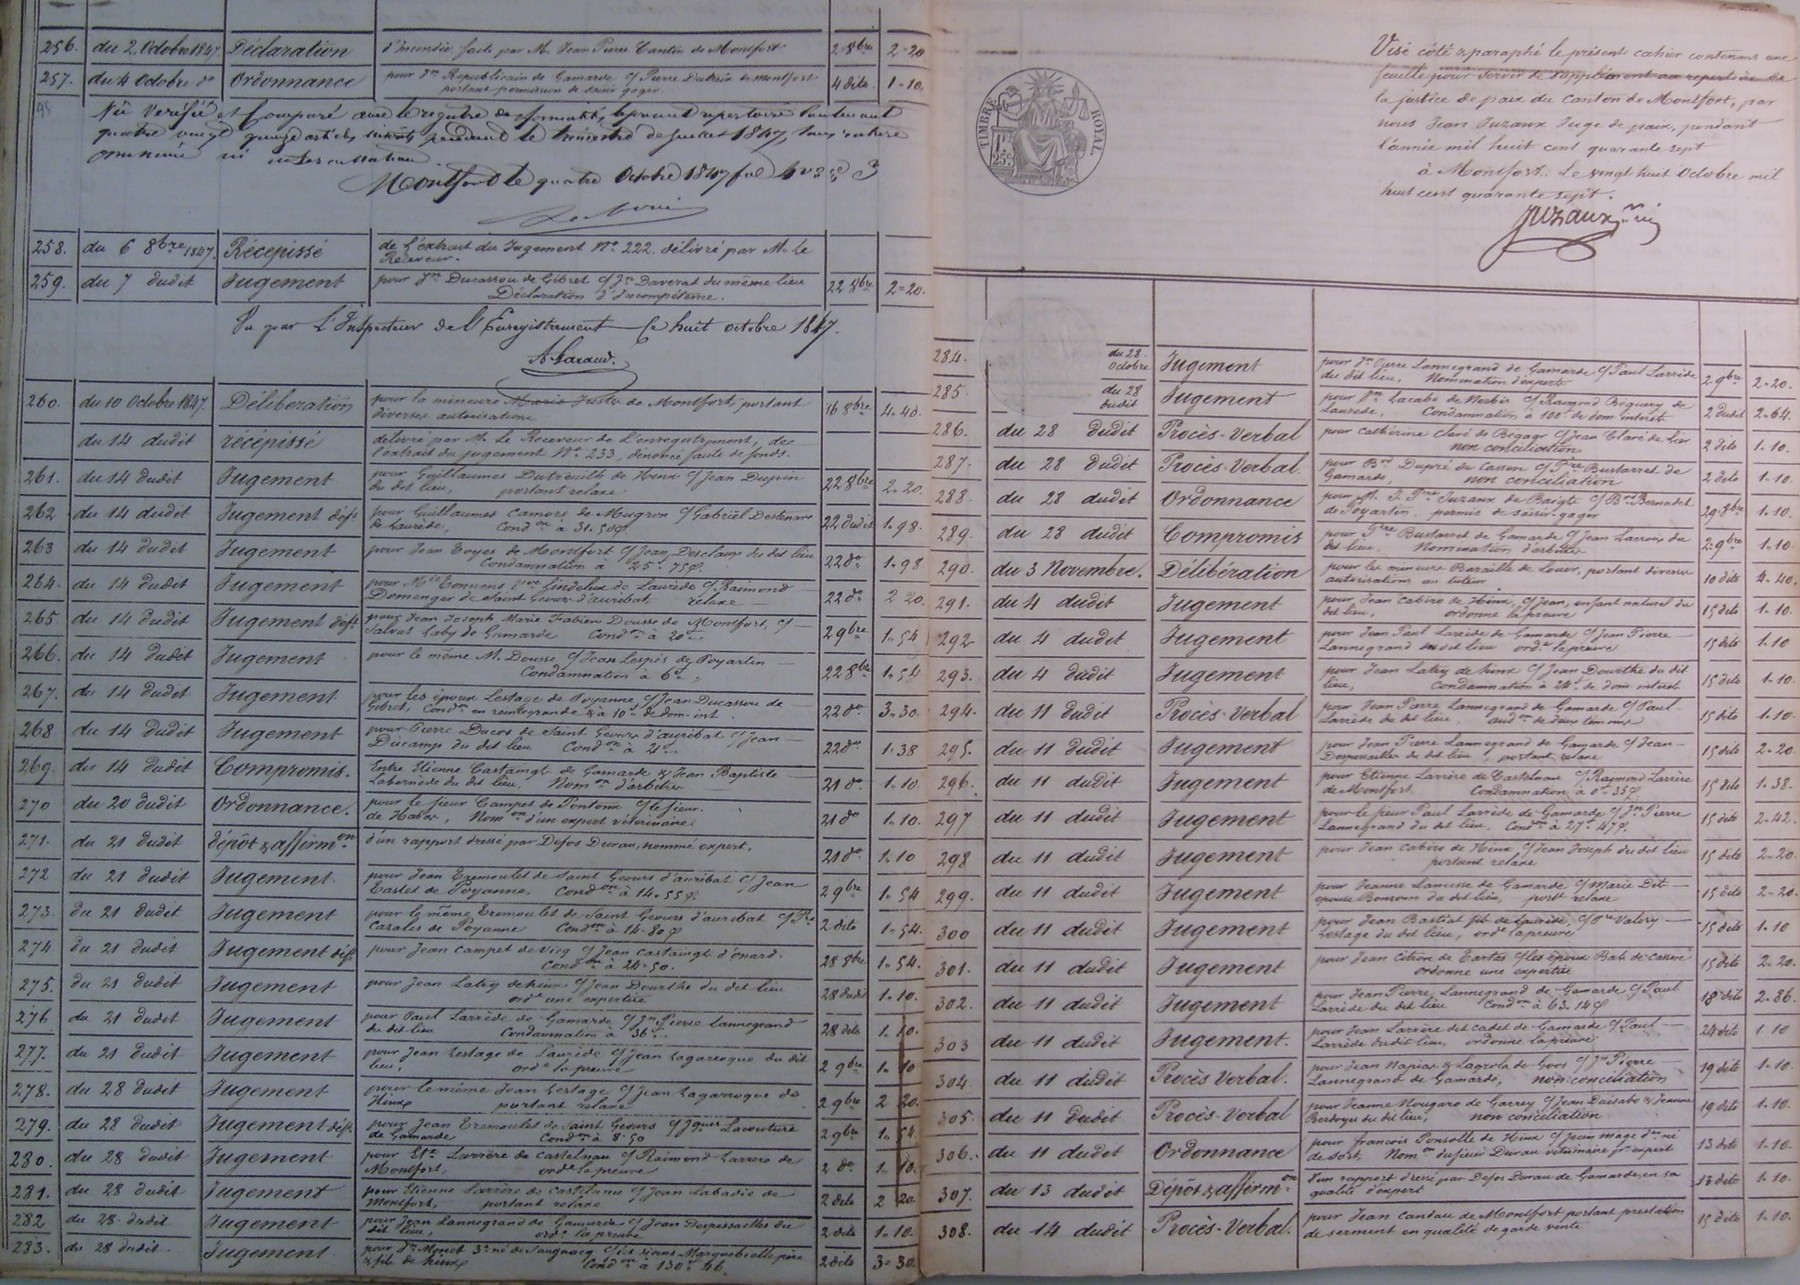 256. du 2 Octobre 1847 Déclaration d'incendie faite par M. Jean Pierre Cantin de Montfort 2-8bre 2-20
257. du 4 Octobre do Ordonnance pour Republicain de Gamarde c/ Pierre de Montfort 4 dito. 1-10.
portant permission de saisir gager.
95
Vu Vérifié et Comparé avec le registre de formalité, le présent repertoire contenant
quatre vingt quinze articles pendant le trimestre de Juillet 1847,
omission ni
Montfort le quatre Octobre 1847
258. du 6 8bre 1847. Récépissé de l'extrait du Jugement No. 222. délivré par M. Le
Receveur.
259. du 7 dudit Jugement pour Jn Ducassou de Gibret c/ Jn Daverat du même lieu 22 8bre 2-20.
Déclaration d'Incompétence.
Vu par L'Inspecteur de l'Enregistrement Ce huit octobre 1847.
260. du 10 Octobre 1847. Délibération pour la mineure Marie Juste de Montfort, portant 16 8bre 4-40.
diverses autorisations
du 14 dudit récépissé délivré par M. Le Receveur de l'enregistrement, de
l'extrait du jugement No. 233, dénoncé faute de fonds.
261. du 14 dudit Jugement pour Guillaumes Dutreuilh de Hinx c/ Jean Dupin 22 8bre 2-20
du dit lieu, portant relaxe
262 du 14 dudit Jugement déft pour Guillaumes Camors de Mugron c/ Gabriel 22 dudit 1-98.
de Laurède, Condon à 31-50
263 du 14 dudit Jugement pour Jean Boyer de Montfort c/ Jean Desclaup du dit lieu 22 do 1-98
Condamnation à 25-75
264. du 14 dudit Jugement pour de Laurède c/ Raimond 22 do 2 20.
Domenger de Saint Geours d'auribat, relaxe
265 du 14 dudit Jugement déft pour Jean Joseph Marie Fabien Dousse de Montfort, c/ 2 9bre 1-54
Salvat Laby de Gamarde Condon à 20
266. du 14 dudit Jugement pour le même M. Dousse c/ Jean Lespès de Poyartin 22 8bre 1-54
Condamnation à 6
267. du 14 dudit Jugement pour les époux Lestage de Poyanne c/ Jean Ducassou de 22 do 3-30
Gibret, Condon en reintegrande & à 10 de dom. int.
268 du 14 dudit Jugement pour Pierre Ducos de Saint Geours d'auribat c/ Jean 22 do 1-38
Discamps du dit lieu Condon à 2
269. du 14 dudit Compromis. Entre Etienne Castaingt de Gamarde & Jean Baptiste 21 do 1-10
Labernède du dit lieu, Nomon d'arbitre
270 du 20 dudit Ordonnance. pour le sieur Campet de Pontonx c/ le sieur 21 do 1-10.
de Habas, Nomon d'un expert vétérinaire
271. du 21 dudit dépôt & affirmon d'un rapport dressé par Defos Durau, nommé expert. 21 do 1-10
272 du 21 dudit Jugement pour Jean Tremoulet de Saint Geours d'auribat c/ Jean 2 9bre 1-54
Castet de Poyanne, Condon à 14-55
273. du 21 dudit Jugement pour le même Tremoulet de Saint Geours d'auribat c/ 2 dito 1-54.
Cazales de Poyanne Condon à 14-80
274 du 21 dudit Jugement déft pour Jean Campet de Vicq c/ Jean Castaingt d'onard. 28 8bre 1-54.
Condon à 24-50.
275. du 21 dudit Jugement pour Jean Latry de hinx c/ Jean Dourthe du dit lieu 28 dudit 1-10.
ord. une expertise
276 du 21 dudit Jugement pour Paul Larrède de Gamarde c/ Jn Pierre Lannegrand 28 dito 1-10.
du dit lieu Condamnation à 36
277. du 21 dudit Jugement pour Jean Lestage de Laurède c/ Jean Lagarroque du dit 2 9bre 1-10
lieu, ord. la preuve
278. du 28 dudit Jugement pour le même Jean Lestage c/ Jean Lagarroque de 2 9bre 2 20.
Hinx portant relaxe
279. du 28 dudit Jugement déft pour Jean Tremoulet de Saint Geours c/ Lacouture 2 9bre 1-54.
de Gamarde Condon à 8-50
280. du 28 dudit Jugement pour Larrère de Castelnau c/ Raimond Larrere de 2 do 1-10.
Montfort, ord. la preuve
281. du 28 dudit Jugement pour Etienne Larrère de Castelnau c/ Jean Labadie de 2 dito 2 20
Montfort, portant relaxe
282 du 28 dudit Jugement pour Jean Lannegrand de Gamarde c/ Jean Despessailles du 2 dito 1-10.
dit lieu, ord. la preuve
283. du 28 dudit Jugement pour Monet de Saugnacq c/ les sieurs père 2 dito 3-30.
& fils de hinx Condon à 130 46
TIMBRE ROYAL.
Visé côté & paraphé le présent cahier contenant une
feuille pour servir de supplément au repertoire de
la justice de paix du canton de Montfort, par
nous Jean Juzaux Juge de paix, pendant
l'année mil huit cent quarante sept
à Montfort. Le vingt huit Octobre mil
huit cent quarante sept.
Juzaux
284. du 28 Octobre Jugement pour Jn Pierre Lannegrand de Gamarde c/ Paul Larrède 2 9bre 2-20.
du dit lieu, Nomination d'experts
285 du 28 dudit Jugement pour Lacabe de Nerbis c/ Raimond Béguery de 2 dudit 2-64.
Laurède, Condamnation à 100 de dom. intérêts
286. du 28 dudit Procès-Verbal pour Catherine Claré de Bégaar c/ Jean Claré de Lier 2 dito 1-10.
non conciliation
287. du 28 dudit Procès-Verbal. pour Dupré de Cassen c/ Bustarret de 2 dito 1-10
Gamarde, non conciliation
288. du 28 dudit Ordonnance pour M. Juzaux de Baigts c/ Bernadet 29 8bre 1-10.
de Poyartin permis de saisir gager
289. du 28 dudit Compromis pour Bustarret de Gamarde c/ Jean Lacrouts du 2 9bre 1-10
dit lieu. Nomination d'arbitre
290. du 3 Novembre. Délibération pour les mineurs Baraille de Louer, portant diverses 10 dito 4-40.
autorisations au tuteur
291. du 4 dudit Jugement pour Jean Cabiro de Hinx, c/ Jean, enfant naturel du 15 dito 1-10.
dit lieu, ordonne la preuve
292 du 4 dudit Jugement pour Jean Paul Larrède de Gamarde c/ Jean Pierre 15 dito 1-10
Lannegrand du dit lieu ord. la preuve
293. du 4 dudit Jugement pour Jean Latry de hinx c/ Jean Dourthe du dit 15 dito 1-10
lieu, Condamnation à 24 de dom. intérêt
294. du 11 dudit Procès-Verbal pour Jean Pierre Lannegrand de Gamarde c/ Paul 15 dito 1-10.
Larrède du dit lieu audon de deux témoins
295. du 11 dudit Jugement pour Jean Pierre Lannegrand de Gamarde c/ Jean 15 dito 2-20
Despessailles du dit lieu, portant relaxe
296. du 11 dudit Jugement pour Etienne Larrère de Castelnau c/ Raymond Larrère 15 dito 1-38.
de Montfort Condamnation à 0-35
297 du 11 dudit Jugement pour le sieur Paul Larrède de Gamarde c/ Jn Pierre 15 dito 2-42.
Lannegrand du dit lieu, Condon à 27-47
298 du 11 dudit Jugement pour Jean Cabiro de Hinx c/ Jean Joseph du dit lieu 15 dito 2-20.
portant relaxe
299. du 11 dudit Jugement pour Jeanne Lamusse de Gamarde c/ Marie Dit 15 dito 2-20.
épouse du dit lieu, port relaxe
300 du 11 dudit Jugement pour Jean Bastiat fils de Laurède, c/ Valéry 15 dito 1-10
Lestage du dit lieu, ord. la preuve
301. du 11 dudit Jugement pour Jean Citron de Tartas c/ les époux Bats de Cassen 15 dito 2-20.
ordonne une expertise
302. du 11 dudit Jugement pour Jean Pierre Lannegrand de Gamarde c/ Paul 18 dito 2-86.
Larrède du dit lieu Condon à 63-14
303 du 11 dudit Jugement. pour Jean Larrère dit Cadet de Gamarde c/ Paul 24 dito 1-10
Larrède du dit lieu, ordonne la preuve
304. du 11 dudit Procès Verbal. pour Jean Napias & Lagrola de Goos c/ Jn Pierre 19 dito 1-10.
Lannegrand de Gamarde, non conciliation
305. du 11 dudit Procès-Verbal pour Jeanne Nougaro de Garrey c/ Jean Daisabo & Jeanne 19 dito 1-10.
du dit lieu, non conciliation
306. du 11 dudit Ordonnance pour françois Ponsolle de Hinx c/ Jean 13 dito 1-10.
de sort, Nomon du sieur Durau vétérinaire pr expert
307. du 13 dudit Dépôt & affirmon d'un rapport dressé par Defos Durau de Gamarde, en sa 13 dito 1-10.
qualité d'expert
308. du 14 dudit Procès-Verbal. pour Jean Cantau de Montfort portant prestation 15 dito 1-10.
de serment en qualité de garde vente